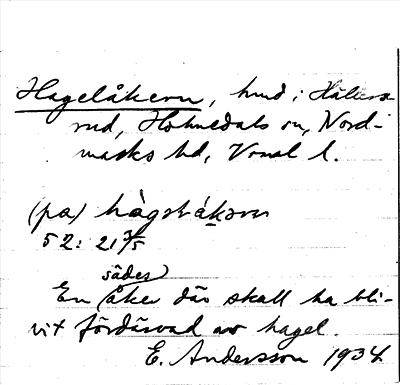 Hagelåkern, hmd i Håltens
rud, Holmedals sn, Nord-
marks hd, Vrml l.
(pa) hágəlákərn
52: 21 7/5
En sädesåker där skall ha bli-
vit fördärvad av hagel.
E. Andersson 1934